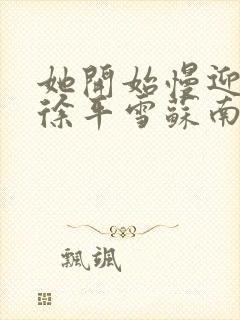 她開始慢迎
徐平雪蘇南
飄颯